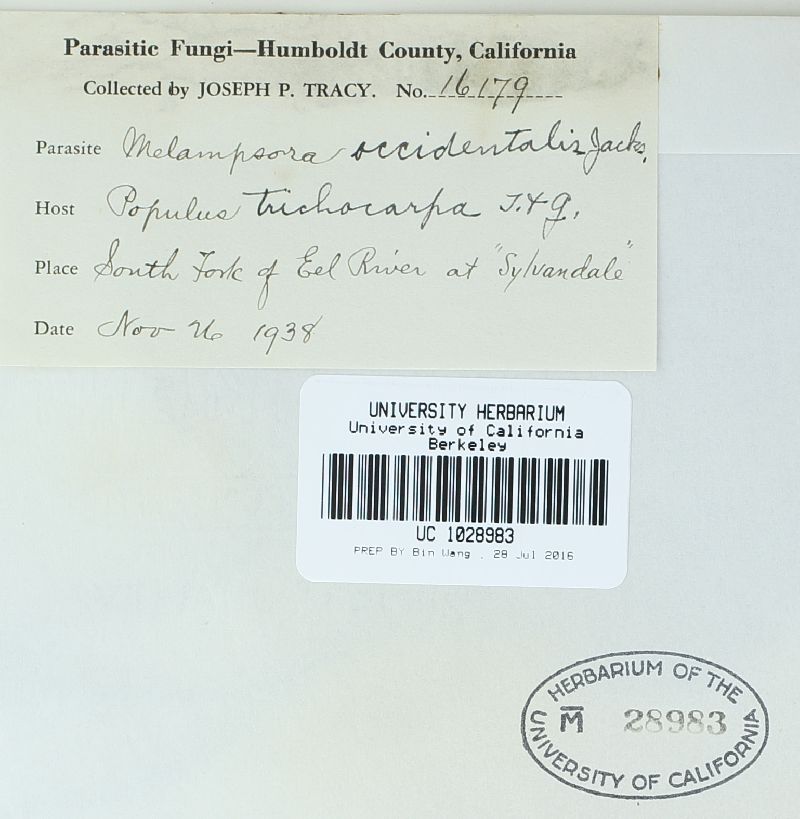 Parasitic Fungi—Humboldt County, California
Collected by JOSEPH P. TRACY. No. 16179
Parasite Melampsora occidentalis Jacks.
Host Populus trichocarpa T. & G.
Place South Fork of Eel River at "Sylvandale"
Date Nov 26 1938
UNIVERSITY HERBARIUM
University of California
Berkeley
UC 1028983
PREP BY Bin Wang . 28 Jul 2016
HERBARIUM OF THE
M 28983
UNIVERSITY OF CALIFORNIA